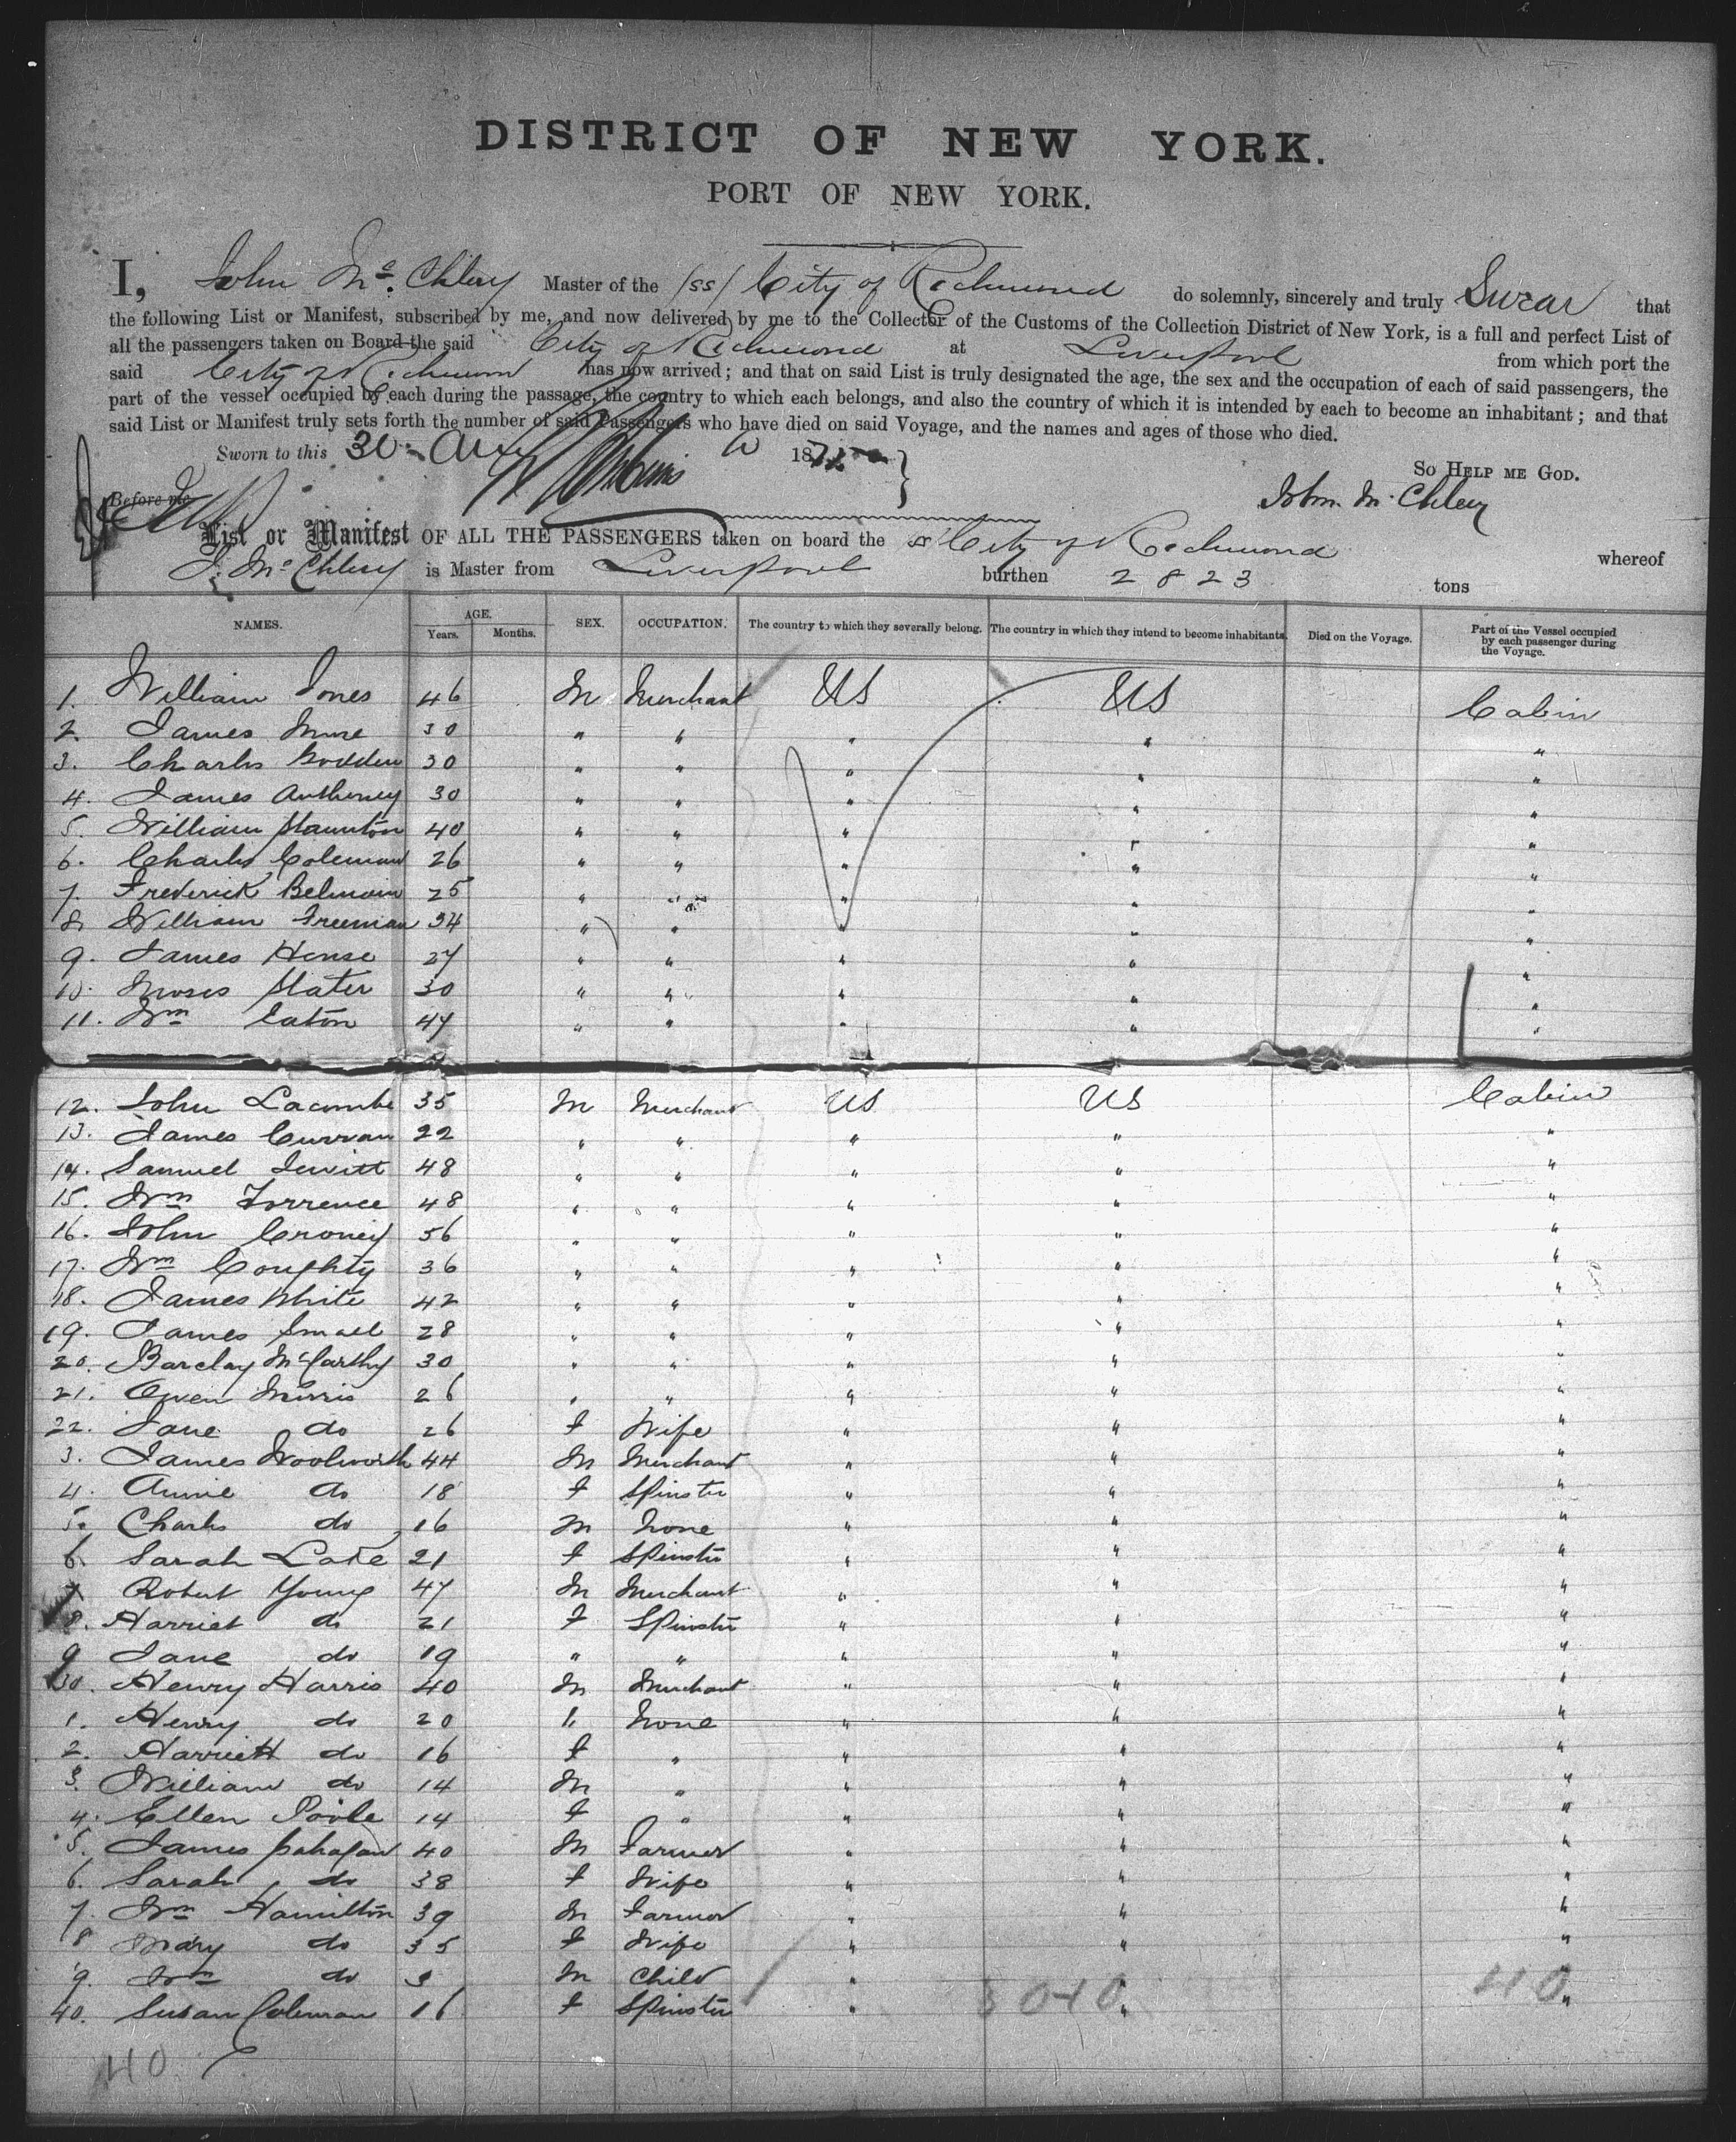 DISTRICT OF NEW YORK.
PORT OF NEW YORK.
I, John Mc. Chlery Master of the (ss) City of Richmond do solemnly, sincerely and truly Swear that
the following List or Manifest, subscribed by me, and now delivered by me to the Collector of the Customs of the Collection District of New York, is a full and perfect List of
all the passengers taken on Board the said City of Richmond at Liverpool from which port the
said City of Richmond has now arrived; and that on said List is truly designated the age, the sex and the occupation of each of said passengers, the
part of the vessel occupied by each during the passage, the country to which each belongs, and also the country of which it is intended by each to become an inhabitant; and that
said List or Manifest truly sets forth the number of said Passengers who have died on said Voyage, and the names and ages of those who died.
Sworn to this 30 187
So HELP ME GOD.
Before me John. M. Chlery
List or Manifest OF ALL THE PASSENGERS taken on board the ss City of Richmond whereof
J. Mc Chlery is Master from Liverpool burthen 2823 tons
NAMES. AGE. Years. Months. SEX. OCCUPATION. The country to which they severally belong. The country in which they intend to become inhabitants. Died on the Voyage. Part of the Vessel occupied by each passenger during the Voyage.
1. William Jones 46 M Merchant US US Cabin
2. James 30 " " " " "
3. Charles Bodden 30 " " " " "
4. James Anthoney 30 " " " " "
5. William Staunton 40 " " " " "
6. Charles Coleman 26 " " " " "
7. Frederick Belmain 25 " " " " "
8. William Freeman 34 " " " " "
9. James House 27 " " " " "
10. Moses Slater 30 " " " " "
11. Wm Eaton 47 " " " " "
12. John Lacombe 35 M Merchant US US Cabin
13. James Curran 22 " " " " "
14. Samuel Jewitt 48 " " " " "
15. Wm Torrence 48 " " " " "
16. John Croney 56 " " " " "
17. Wm Coughty 36 " " " " "
18. James White 42 " " " " "
19. James Small 28 " " " " "
20. Barclay McCarthy 30 " " " " "
21. Owen Morris 26 " " " " "
22. Jane do 26 F Wife " " "
3. James Woolworth 44 M Merchant " " "
4. Annie do 18 F Spinster " " "
5. Charles do 16 M None " " "
6. Sarah Lake 21 F Spinster " " "
7 Robert Young 47 M Merchant " " "
8. Harriet do 21 F Spinster " " "
9 Jane do 19 " " " " "
30. Henry Harris 40 M Merchant " " "
1. Henry do 20 " None " " "
2. Harriett do 16 F " " " "
3. William do 14 M " " " "
4. Ellen Poole 14 F " " " "
5. James 40 M Farmer " " "
6. Sarah do 38 F Wife " " "
7. Wm Hamilton 39 M Farmer " " "
8 Mary do 35 F Wife " " "
9. Wm do 3 M Child " " "
40. Susan Coleman 16 F Spinster " " "
3040 40
40